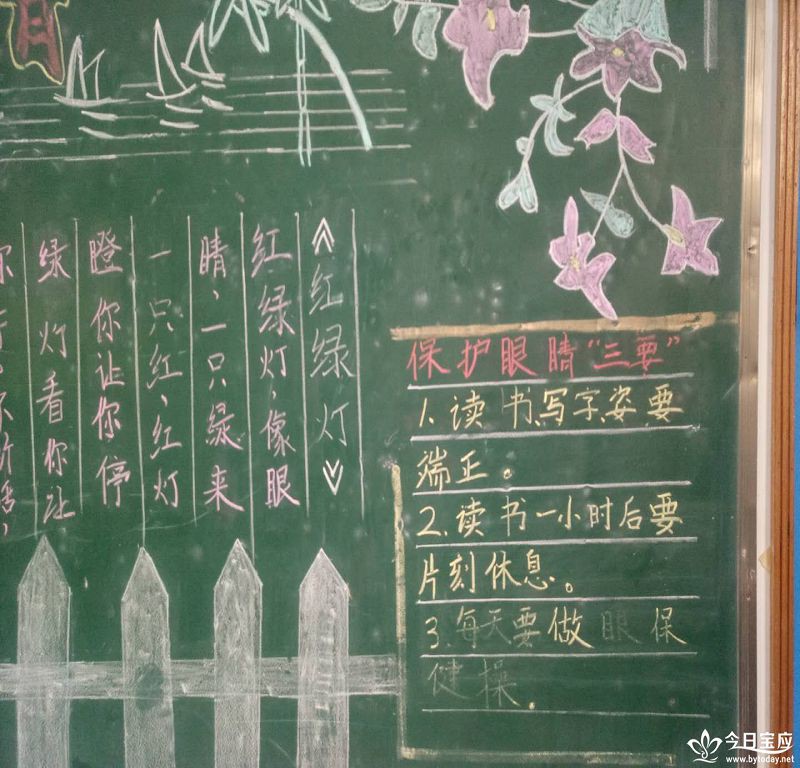 《红绿灯》
红绿灯，像眼
睛，一只绿来
一只红、红灯
瞪你让你停
绿灯看你让
保护眼睛"三要"
1、读书写字姿要
端正。
2、读书一小时后要
片刻休息。
3、每天要做眼保
健操.
今日宝应
www.bytoday.net